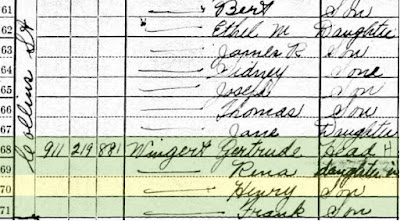 61 — Bert Son
62 — Ethel M Daughter
63 — James R Son
64 — Sidney Sone
65 — Joseph Son
66 — Thomas Son
67 — Jane Daughter
68 911 219 881 Wingert Gertrude Head H
69 — Rena daughter in
70 — Henry Son
71 — Frank Son
Collins St